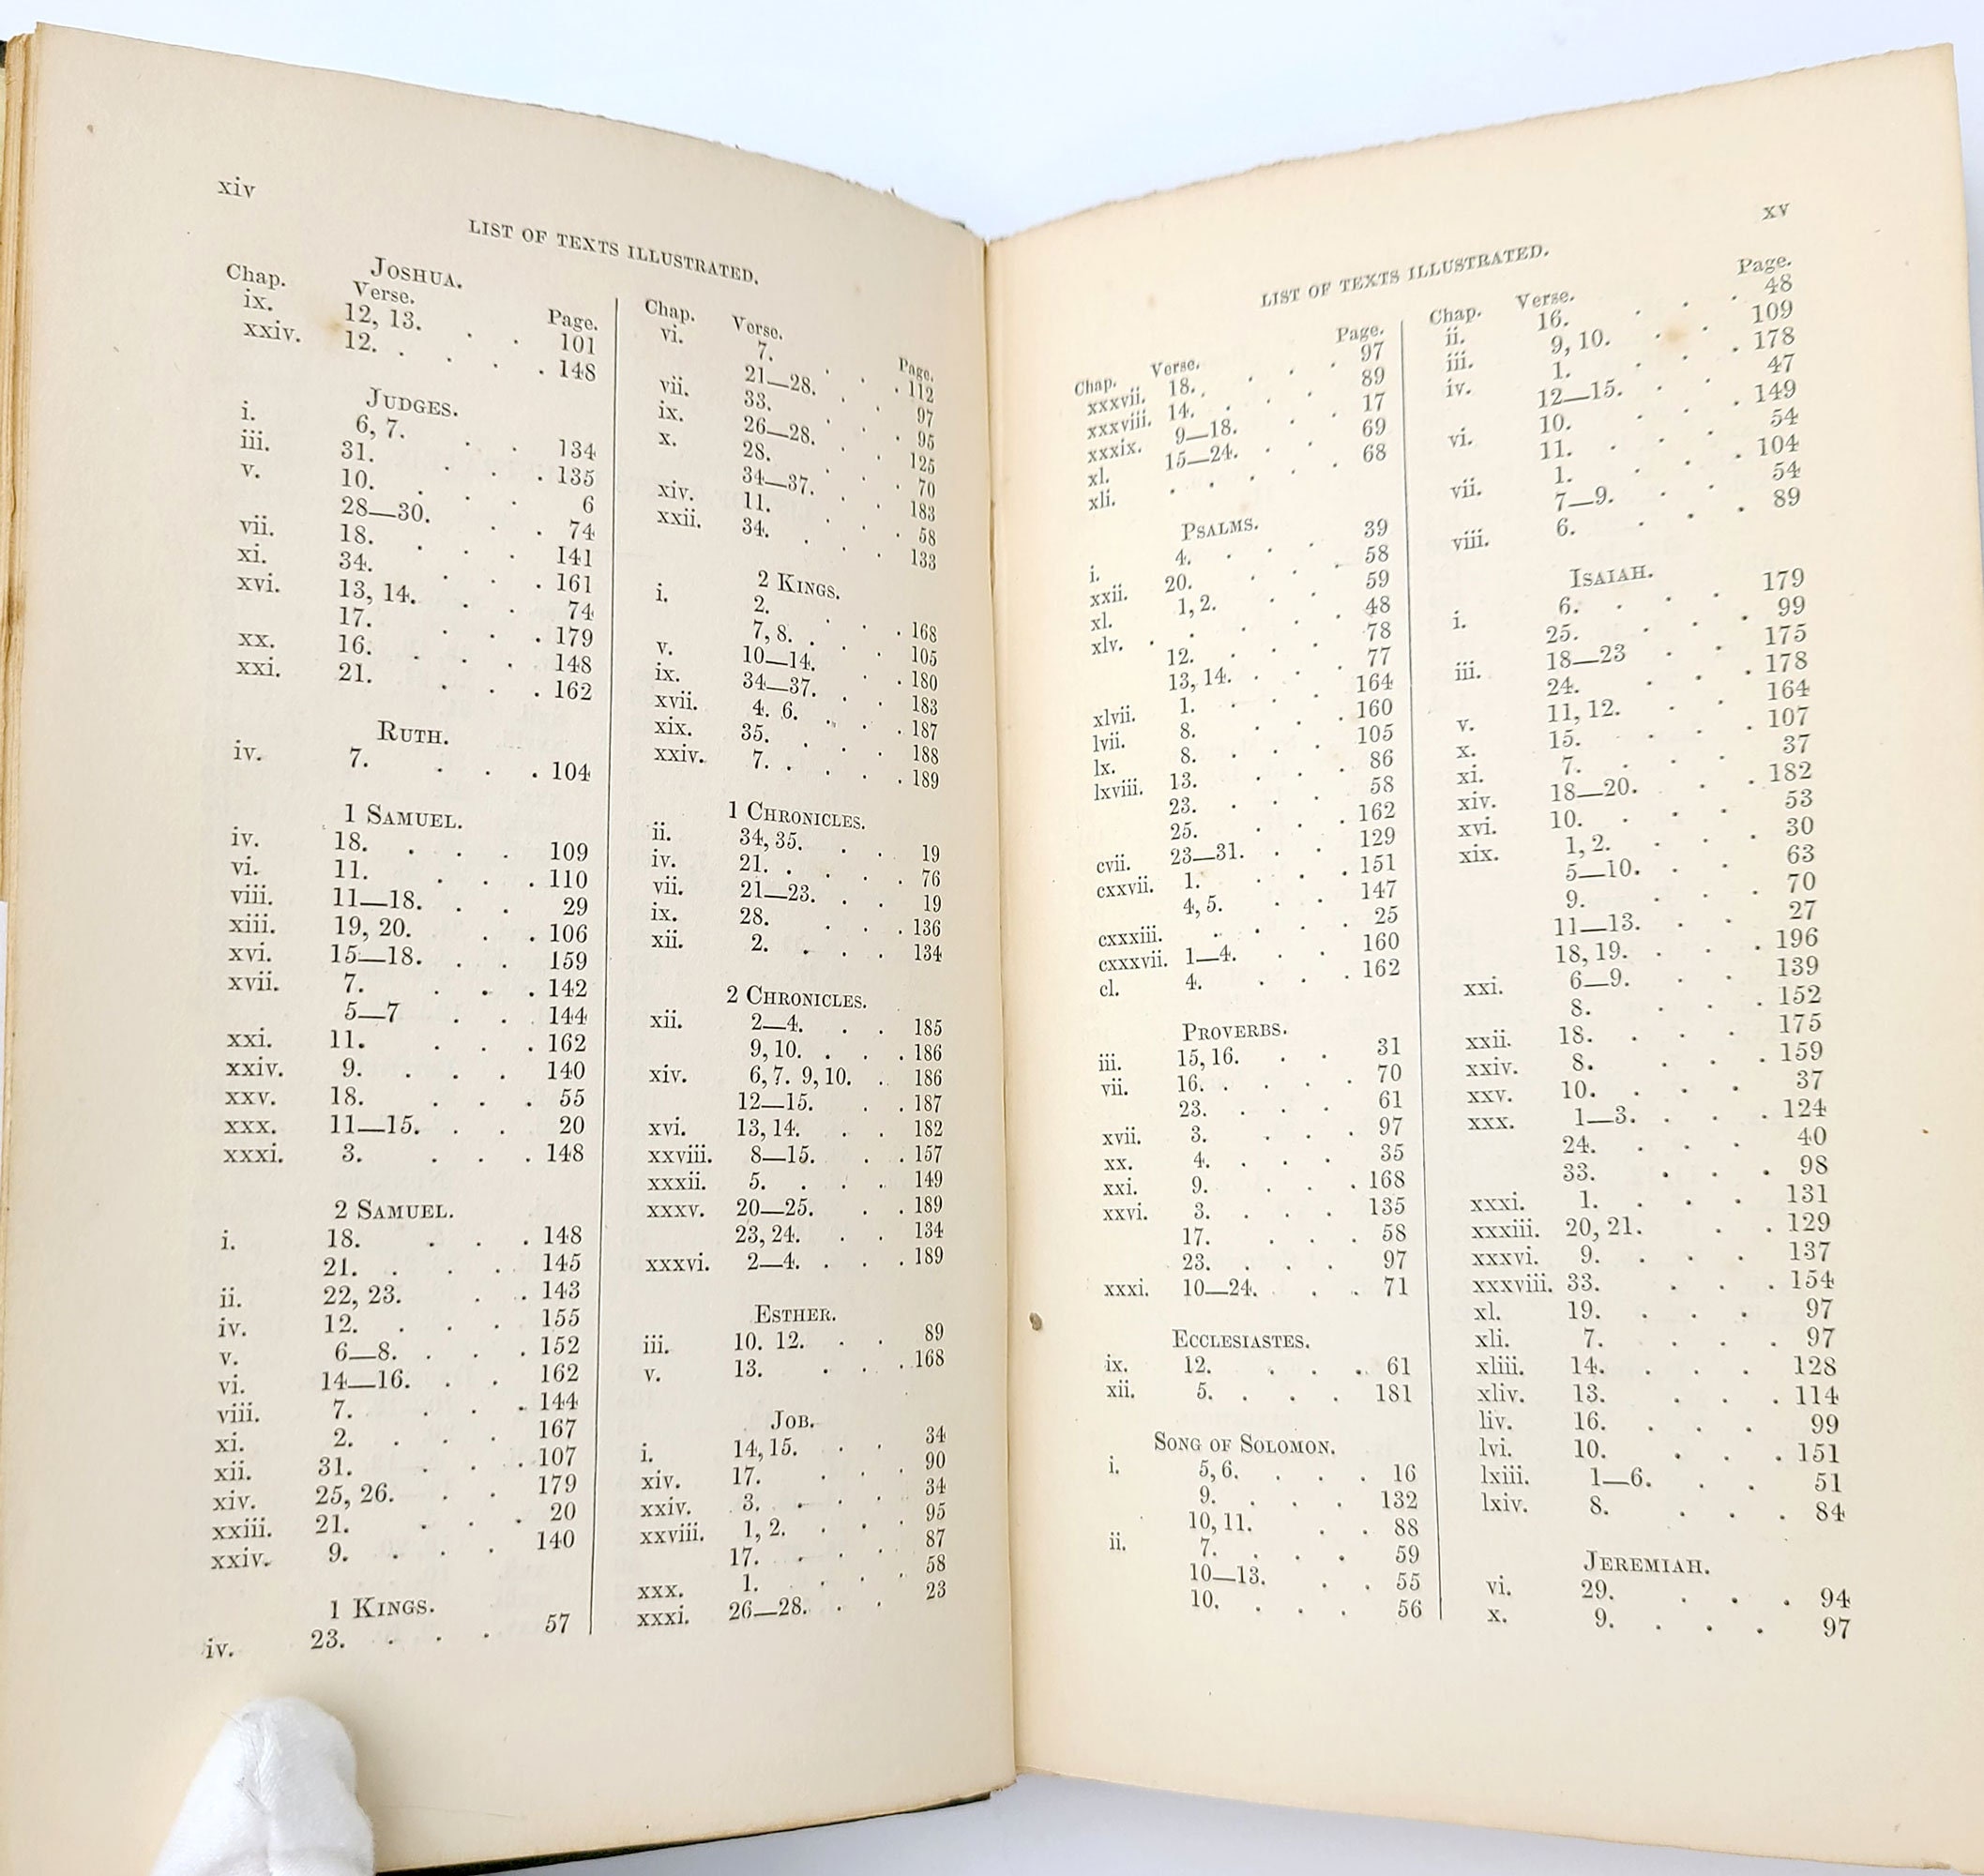 xiv
LIST OF TEXTS ILLUSTRATED.
JOSHUA.
Chap. Verse. Page.
ix. 12, 13. . . 101
xxiv. 12. . . . 148
JUDGES.
i. 6, 7. . . 134
iii. 31. . . . 135
v. 10. . . . 6
28—30. . . 74
vii. 18. . . . 141
xi. 34. . . . 161
xvi. 13, 14. . . 74
17. . . . 179
xx. 16. . . . 148
xxi. 21. . . . 162
RUTH.
iv. 7. . . . 104
1 SAMUEL.
iv. 18. . . . 109
vi. 11. . . . 110
viii. 11—18. . . 29
xiii. 19, 20. . . 106
xvi. 15—18. . . 159
xvii. 7. . . . 142
5—7 . . 144
xxi. 11. . . . 162
xxiv. 9. . . . 140
xxv. 18. . . . 55
xxx. 11—15. . . 20
xxxi. 3. . . . 148
2 SAMUEL.
i. 18. . . . 148
21. . . . 145
ii. 22, 23. . . 143
iv. 12. . . . 155
v. 6—8. . . . 152
vi. 14—16. . . 162
viii. 7. . . . 144
xi. 2. . . . 167
xii. 31. . . . 107
xiv. 25, 26. . . 179
xxiii. 21. . . . 20
xxiv. 9. . . . 140
1 KINGS.
iv. 23. . . . 57
Chap. Verse. Page.
vi. 7. . . . 112
21—28. . . 97
vii. 33. . . . 95
ix. 26—28. . . 125
x. 28. . . . 70
34—37. . . 183
xiv. 11. . . . 58
xxii. 34. . . . 133
2 KINGS.
i. 2. . . . 168
7, 8. . . . 105
v. 10—14. . . 180
ix. 34—37. . . 183
xvii. 4. 6. . . . 187
xix. 35. . . . 188
xxiv. 7. . . . 189
1 CHRONICLES.
ii. 34, 35. . . 19
iv. 21. . . . 76
vii. 21—23. . . 19
ix. 28. . . . 136
xii. 2. . . . 134
2 CHRONICLES.
xii. 2—4. . . 185
9, 10. . . . 186
xiv. 6, 7. 9, 10. . 186
12—15. . . 187
xvi. 13, 14. . . 182
xxviii. 8—15. . . 157
xxxii. 5. . . . 149
xxxv. 20—25. . . 189
23, 24. . . 134
xxxvi. 2—4. . . . 189
ESTHER.
iii. 10. 12. . . 89
v. 13. . . . 168
JOB.
i. 14, 15. . . 34
xiv. 17. . . . 90
xxiv. 3. . . . 34
xxviii. 1, 2. . . . 95
17. . . . 87
xxx. 1. . . . 58
xxxi. 26—28. . . 23
xv
LIST OF TEXTS ILLUSTRATED.
Chap. Verse. Page.
xxxvii. 18. . . . 97
xxxviii. 14. . . . 89
xxxix. 9—18. . . 17
xl. 15—24. . . 69
xli. . . . . 68
PSALMS.
i. 4. . . . 39
xxii. 20. . . . 58
xl. 1, 2. . . 59
xlv. . . . . 48
12. . . . 78
13, 14. . . 77
xlvii. 1. . . . 164
lvii. 8. . . . 160
lx. 8. . . . 105
lxviii. 13. . . . 86
23. . . . 58
25. . . . 162
cvii. 23—31. . . 129
cxxvii. 1. . . . 151
4, 5. . . 147
cxxxiii. . . . . 25
cxxxvii. 1—4. . . 160
cl. 4. . . . 162
PROVERBS.
iii. 15, 16. . . 31
vii. 16. . . . 70
23. . . . 61
xvii. 3. . . . 97
xx. 4. . . . 35
xxi. 9. . . . 168
xxvi. 3. . . . 135
17. . . . 58
23. . . . 97
xxxi. 10—24. . . 71
ECCLESIASTES.
ix. 12. . . . 61
xii. 5. . . . 181
SONG OF SOLOMON.
i. 5, 6. . . . 16
9. . . . 132
10, 11. . . 88
ii. 7. . . . 59
10—13. . . 55
10. . . . 56
Chap. Verse. Page.
ii. 16. . . . 48
iii. 9, 10. . . 109
iv. 1. . . . 178
12—15. . . 47
vi. 10. . . . 149
11. . . . 54
vii. 1. . . . 104
7—9. . . 54
viii. 6. . . . 89
ISAIAH.
i. 6. . . . 179
25. . . . 99
iii. 18—23 . . 175
24. . . . 178
v. 11, 12. . . 164
x. 15. . . . 107
xi. 7. . . . 37
xiv. 18—20. . . 182
xvi. 10. . . . 53
xix. 1, 2. . . 30
5—10. . . 63
9. . . . 70
11—13. . . 27
18, 19. . . 196
xxi. 6—9. . . 139
8. . . . 152
xxii. 18. . . . 175
xxiv. 8. . . . 159
xxv. 10. . . . 37
xxx. 1—3. . . . 124
24. . . . 40
33. . . . 98
xxxi. 1. . . . 131
xxxiii. 20, 21. . . 129
xxxvi. 9. . . . 137
xxxviii. 33. . . . 154
xl. 19. . . . 97
xli. 7. . . . 97
xliii. 14. . . . 128
xliv. 13. . . . 114
liv. 16. . . . 99
lvi. 10. . . . 151
lxiii. 1—6. . . 51
lxiv. 8. . . . 84
JEREMIAH.
vi. 29. . . . 94
x. 9. . . . 97